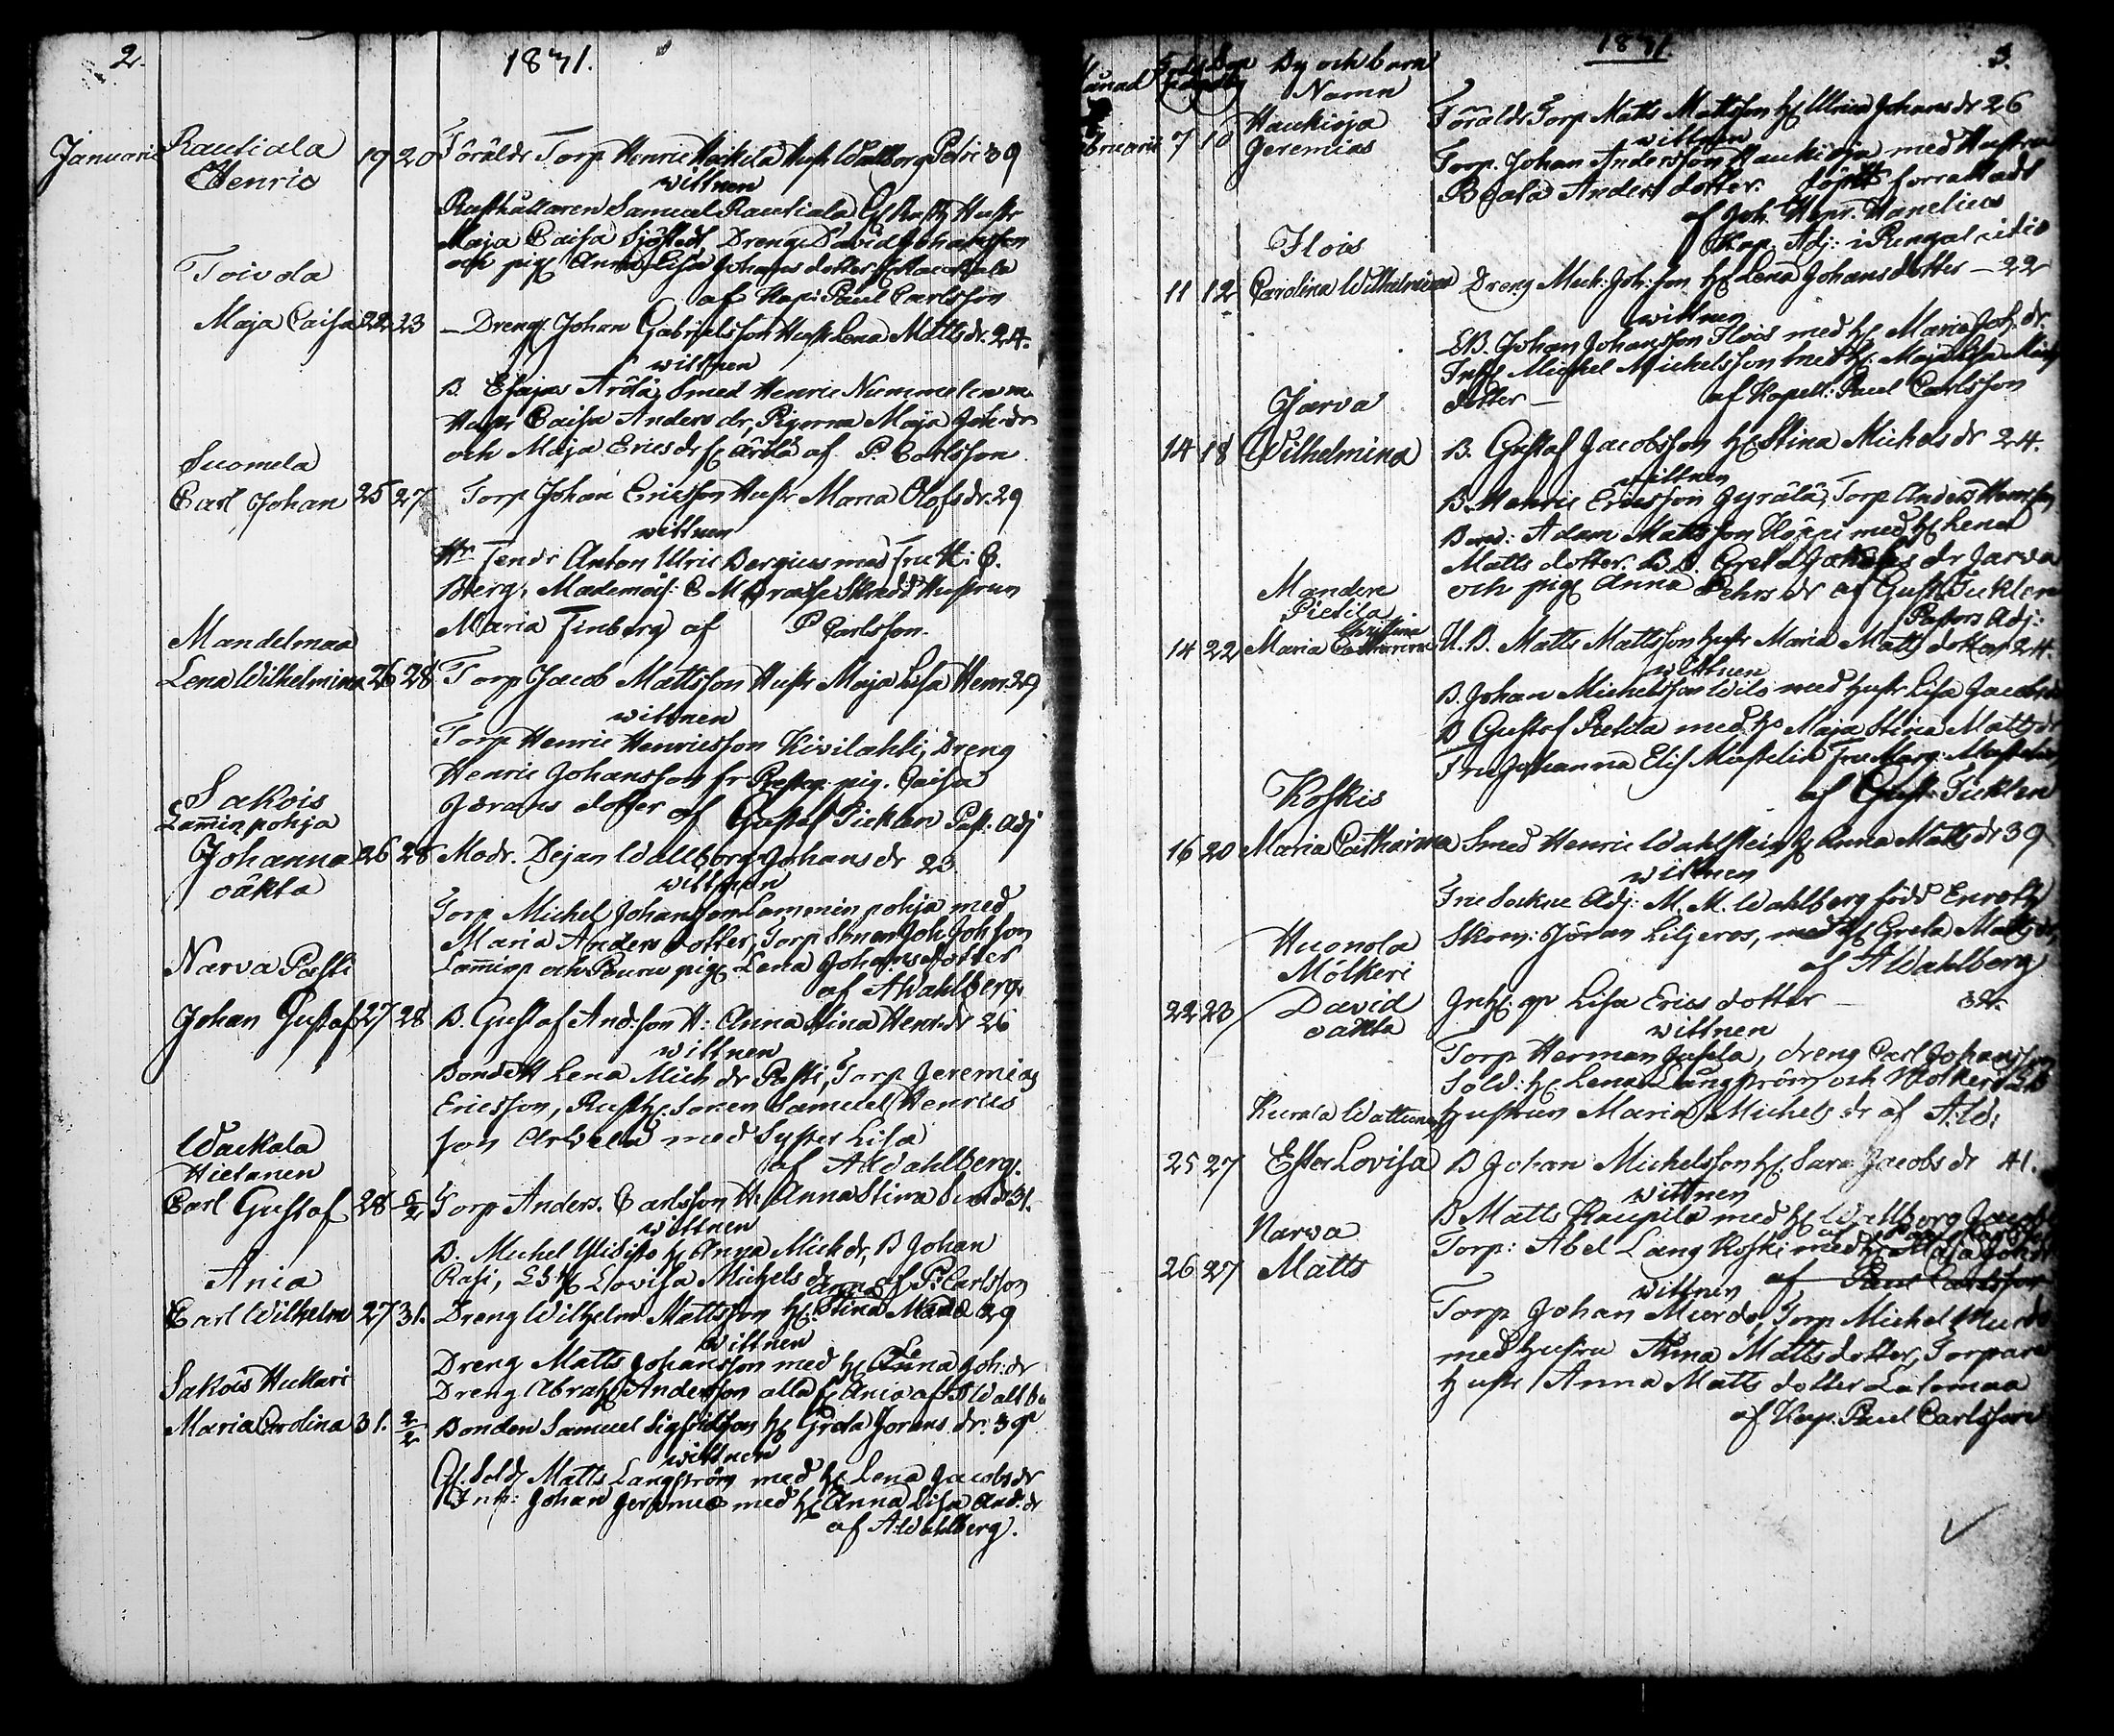 2.
1831.
Januarii Rautiala 19 20 Föräldr Torp Henric Hackila Hustr Walborg Petri 39
Henric
wittnen
Rusthållaren Samuel Rautiala Hustr
Maja Caisa Sjöstedt, Dreng David Johansson
och pig Anna Lisa Johans dotter fr Rautiala
af Kap: Paul Carlsson
Toivola
Maja Caisa 22 23 – Dreng Johan Gabrielsson Hustr Lena Matts dr. 24.
wittnen
B. Esajas Ärölä, Smed Henric Nummelin m
Hustr Caisa Anders dr, Pigorna Maja Joh: dr
och Maja Erics dr fr Ärölä af P. Carlsson
Suomela
Carl Johan 25 27 Torp Johan Ericsson Hustr Maria Olofs dr. 29
wittnen
Hr Fendr Anton Ulric Bergius med Fru H: C.
Berg, Mademois: C M Skredd Hustrun
Maria Finberg af P Carlsson.
Mandelmaa
Lena Wilhelmina 26 28 Torp Jacob Mattsson Hustr Maja Lisa Henr. 29
wittnen
Torp Henric Henricsson Kivilahti, Dreng
Henric Johansson fr Prestg: pig. Caisa
Jörans dotter af Gustaf Ticklen Past: Adj
Sakois
Lam̅inpohja
Johanna 26 28 Modr. Dejan Wallborg Johans dr 23.
oäkta
wittnen
Torp Michel Johansson Lamminpohja med
Maria Anders dotter, Torp Simon Joh: Johsson
Lam̅inp och Pauru pig Lena Johans dotter
af A Wahlberg.
Narva Påsti
Johan Gustaf 27 28 B. Gustaf And:son H: Anna Stina Henr: dr 26
wittnen
Bonde H Lena Mich dr Påsti, Torp Jeremias
Ericsson, Rusth: Sonen Samuel Henrics
son Arvela med Syster Lisa
af A Wahlberg.
Wackala
Hietanen
Carl Gustaf 28 6/2 Torp Anders. Carlsson H: Anna Stina Sim dr 31.
wittnen
B. Michel Ylisisto H Anna Mich dr, B Johan
Rasi, Lovisa Michels dr af P: Carlsson
Ania
Carl Wilhelm 27 31. Dreng Wilhelm Mattsson H: Anna Stina 29
wittnen
Dreng Matts Johansson med H Lena Joh: dr
Dreng Abrah Andersson alla fr Ania af A Wallb
Sakois Huktari
Maria Carolina 31. 2/2 Bonden Samuel Sigfridson H Greta Jörans dr. 39
wittnen
Gf. Sold: Matts Långström med H Lena Jacobs dr
Inh: Johan Jeremie med H: Anna Lisa And: dr
af A: Wahlberg.
1831.
3.
By och barn
Namn
Haukioja 7 10 Föräldr Torp Matts Mattsson H Ulrica Johans dr 26
Jeremias
wittnen
Torp. Johan Andersson Haukioja med Hustru
Beata Anders dotter. Döpels förrattadt
af Joh. Henr. Hanelius
Kap. Adj: i Pungalaitio
Ilois
11 12 Carolina Wilhelmina Dreng Mich: Joh:son H Lena Johans dotter – 22
wittnen
B. Johan Johansson Ilois med H: Maria Joh: dr.
Inh: Michel Michelsson med H: Maja Lisa Mich
dotter – af Kapell: Paul Carlsson
Jarva
14 18 Wilhelmina B. Gustaf Jacobsson H Stina Michels dr 24.
wittnen
B. Henric Ericsson Gyrälä, Torp Anders Henrsson
Bond: Adam Mattsson med H Lena
Matts dotter. B. D. Greta dr Jarva
och pig Anna Pehrs dr af Gust Ticklen
Pastors Adj:
Mandere
Pietila
Christina
14 22 Maria Catharina U. B. Matts Mattsson Hustr Maria Matts dotter 24.
wittnen
B. Johan Michelsson Uilo med Hustr Lisa Jacobs
B Gustaf Pietila med H: Maja Stina Matts dr
Fru Johanna Elis Mustelin Fru Marg: Mustelin
af Gust. Ticklen
Koskis
16 20 Maria Catharina Smed Henric Wahlstein H Anna Matts dr 39
wittnen
Fru Sockne Adj: M. M. Wahlberg född Enroth
Skom: Jöran Liljeros, med H Greta Matts dr,
af A Wahlberg
Huonola
Mölkeri
22 23 David Inh: qv Lisa Erics dotter – 32.
oäkta
wittnen
Torp Herman Jussila, dreng Carl Johansson
Sold: H: Lena Långström och
Hustrun Maria Michels dr af A: W:
Kurala Wattunen
25 27 Ester Lovisa B Johan Michelsson H: Sara Jacobs dr 41.
wittnen
B Matts Kaupila med H Wallborg Jacobs
Torp: Abel Långkoski med H: Maja Johans
af Paul Carlsson
Narva
26 27 Matts
wittnen af Paul Carlsson
Torp Johan Murdo, Torp Michel Murdo
med hustru Anna Matts dotter, Torpare
Hustr Anna Matts dotter Lalomaa
af Kap. Paul Carlsson